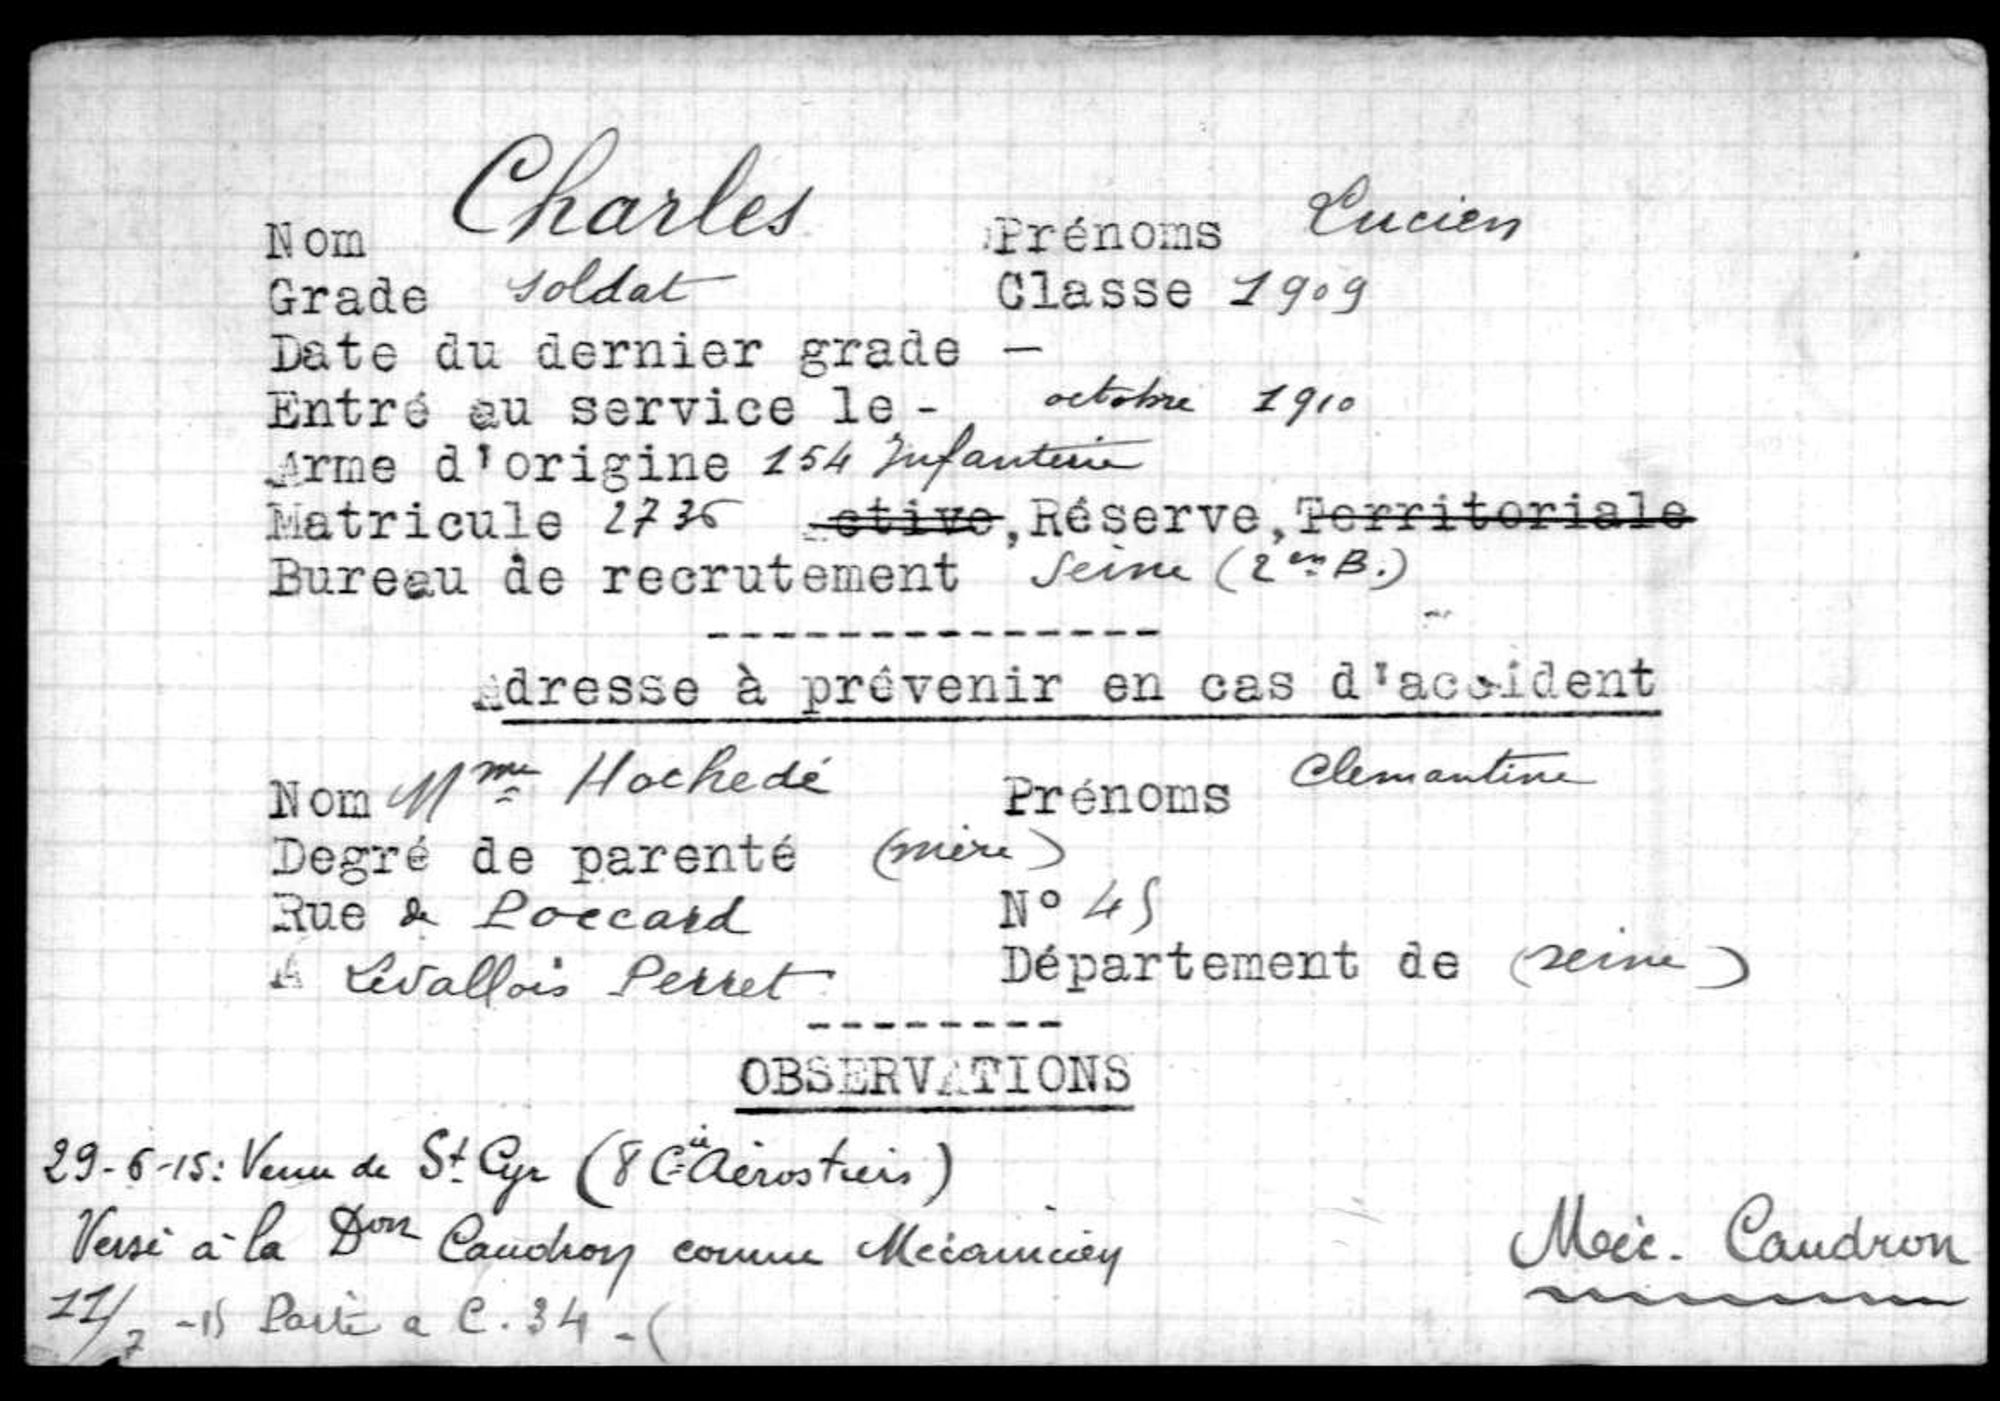 Nom Charles Prénoms Lucien
Grade soldat Classe 1909
Date du dernier grade —
Entré au service le - octobre 1910
Arme d'origine 154 Infanterie
Matricule 2736 Active, Réserve, Territoriale
Bureau de recrutement Seine (2em B.)
Adresse à prévenir en cas d'accident
Nom Mme Hochedé Prénoms Clemantine
Degré de parenté (mère)
Rue de Poccard N° 45
A Levallois Perret Département de (seine)
OBSERVATIONS
29-6-15: Venu de St Cyr (8 Cie Aérostiers)
Versé à la Don Caudron comme Mécanicien
Méc. Caudron
11/7 -15 Parti a C. 34 - (